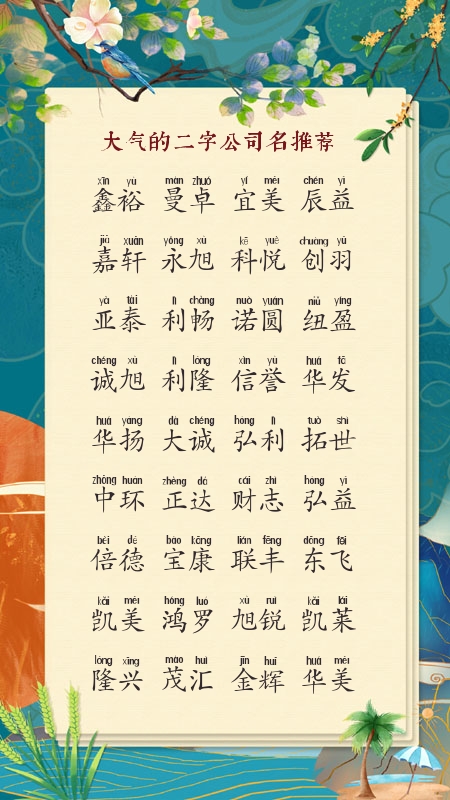 大气的二字公司名推荐
xīn yù màn zhuó yí měi chén yì
鑫裕 曼卓 宜美 辰益
jiā xuān yǒng xù kē yuè chuàng yǔ
嘉轩 永旭 科悦 创羽
yà tài lì chàng nuò yuán niǔ yíng
亚泰 利畅 诺圆 纽盈
chéng xù lì lóng xìn yù huá fā
诚旭 利隆 信誉 华发
huá yáng dà chéng hóng lì tuò shì
华扬 大诚 弘利 拓世
zhōng huán zhèng dá cái zhì hóng yì
中环 正达 财志 弘益
bèi dé bǎo kāng lián fēng dōng fēi
倍德 宝康 联丰 东飞
kǎi měi hóng luó xù ruì kǎi lái
凯美 鸿罗 旭锐 凯莱
lóng xīng mào huì jīn huī huá měi
隆兴 茂汇 金辉 华美